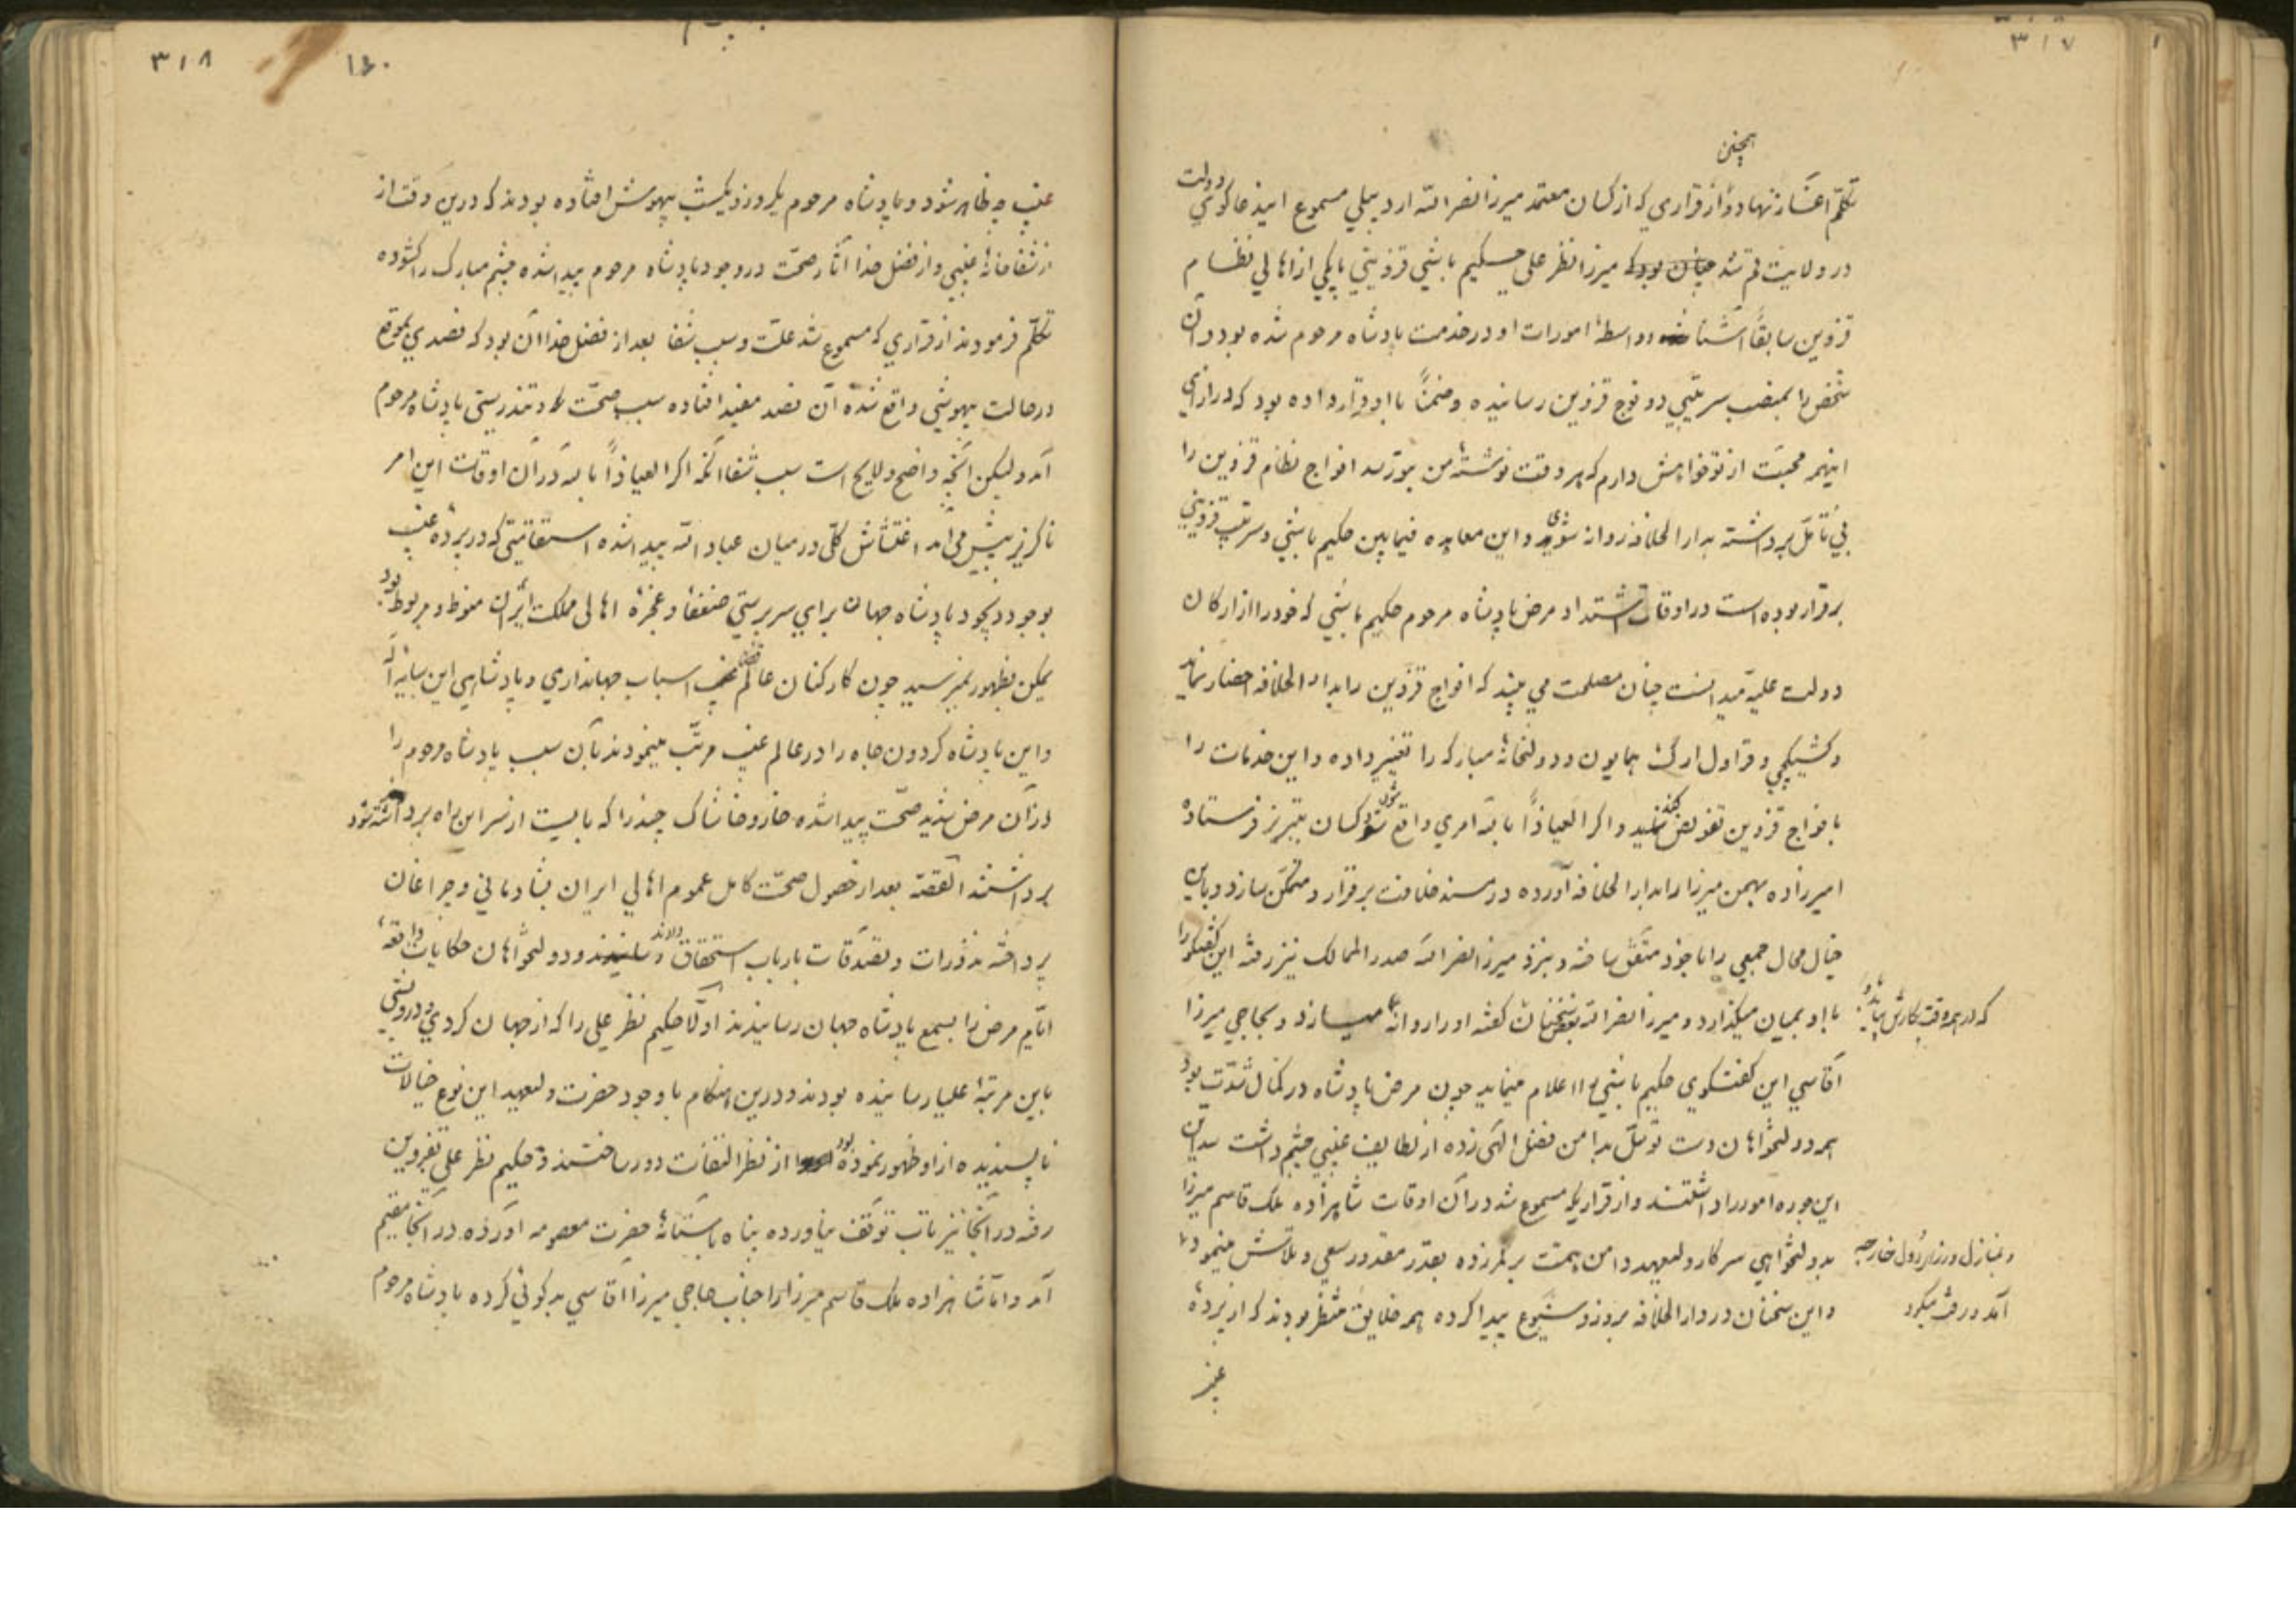 ۳۱۷
همچنین
تکلم آغاز نهاد و از قراری که از کسان معتمد میرزا نصرالله اردبیلی مسموع این دعاگوی دولت
در ولایت قم شد چنان بود که میرزا نظر علی حکیم باشی قزوینی با یکی از اهالی نظام
قزوین سابقاً آشنا و واسطهٔ امورات او در خدمت پادشاه مرحوم شده بود و آن
شخص را بمنصب سرتیپی دو فوج قزوین رسانیده و ضمناً با او قرار داده بود که در ازای
اینهمه محبت از تو خواهش دارم که هر وقت نوشتهٔ من بتو رسد افواج نظام قزوین را
بی تأمل برداشته بدارالخلافه روانه شوی و این معاهده فیمابین حکیم باشی و سرتیپ قزوینی
برقرار بوده است در اوقات اشتداد مرض پادشاه مرحوم حکیم باشی که خود را از ارکان
دولت علیه میدانست چنان مصلحت می بیند که افواج قزوین را بدارالخلافه احضار نماید
و کشیکچی و قراول ارگ همایون و دولتخانهٔ مبارکه را تغییر داده و این خدمات را
بافواج قزوین تفویض کند و اگر العیاذاً بالله امری واقع شود کسان بتبریز فرستاده
امیرزاده بهمن میرزا را بدارالخلافه آورده در مسند خلافت برقرار و متمکن سازد و باین
خیال محال جمعی را با خود متفق ساخته و بنزد میرزا نصرالله صدرالممالک نیز رفته این گفتگو را
با او بمیان میگذارد و میرزا نصرالله بعضی سخنان گفته او را روانه میسازد و بحاجی میرزا
که در هر وقت بکارش بیاید
آقاسی این گفتگوی حکیم باشی را اعلام مینماید چون مرض پادشاه در کمال شدت بود
همه دولتخواهان دست توسل بدامن فضل الهی زده از لطایف غیبی چشم داشت
این جوره امور را داشتند و از قراریکه مسموع شد در آن اوقات شاهزاده ملک قاسم میرزا
بدولتخواهی سرکار ولیعهد دامن همت بر کمر زده بقدر مقدور سعی و تلاش مینمود
و بمنازل وزرای دول خارجه
آمد و رفت میکرد
و این سخنان در دارالخلافه بروز و شیوع پیدا کرده همه خلایق منتظر بودند که از پردهٔ
غیب
۳۱۸
۱۶۰
غیب چه ظاهر شود و پادشاه مرحوم یکروز و یکشب بیهوش افتاده بودند که درین وقت از
از شفاخانهٔ غیبی و از فضل خدا آثار صحت در وجود پادشاه مرحوم پیدا شده چشم مبارک را گشوده
تکلم فرمودند از قراری که مسموع شد علت و سبب شفا بعد از فضل خدا آن بود که فصدی بموقع
در حالت بیهوشی واقع شده آن فصد مفید افتاده سبب صحت و تندرستی پادشاه مرحوم
آمد و لیکن آنچه واضح و لایح است سبب شفا آنکه اگر العیاذاً بالله در آن اوقات این امر
ناگزیر پیش می آمد اغتشاش کلی در میان عباد الله پیدا شده استقامتی که در پردهٔ غیب
بوجود ذیجود پادشاه جهان برای سرپرستی ضعفا و عجزهٔ اهالی مملکت ایران منوط و مربوط بود
یمکن بظهور نمیرسید چون کارکنان عالم غیب اسباب جهانداری و پادشاهی این سایهٔ اله
و این پادشاه گردون جاه را در عالم غیب مرتب مینمودند بآن سبب پادشاه مرحوم را
از آن مرض شدید صحت پیدا شده خار و خاشاک چند را که بایست از سر این راه برداشته شود
برداشتند القصه بعد از حصول صحت کامل عموم اهالی ایران بشادمانی و چراغان
پرداخته نذورات و تصدقات بارباب استحقاق دادند و دولتخواهان حکایات واقعهٔ
ایام مرض را بسمع پادشاه جهان رسانیدند اولاً حکیم نظر علی را که از جهان گردی و درویشی
باین مرتبهٔ علیا رسانیده بودند و درین هنگام با وجود حضرت ولیعهد این نوع خیالات
ناپسندیده از او ظهور نموده بود از نظر التفات دور ساختند و حکیم نظر علی بقزوین
رفته در آنجا نیز تاب توقف نیاورده پناه بآستانهٔ حضرت معصومه آورده در آنجا مقیم
آمد و اما شاهزاده ملک قاسم میرزا را جناب حاجی میرزا آقاسی بدگوئی کرده پادشاه مرحوم